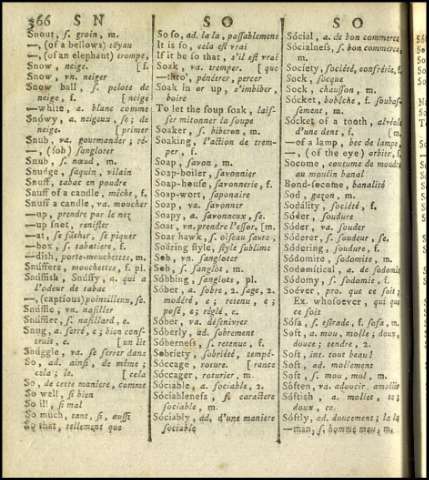 366 S N
S O
S O
Snout, s. groin, m.
—, (of a bellows) tuyau
—, (of an elephant) trompe,
Snow, neige. [ f.
Snow, vn. neiger
Snow ball, s. pelote de
neige, f. [ neige
—white, a. blanc comme
Snówy, a. neigeux, se; de
neige. [ primer
Snub, va. gourmander; ré-
—, (sob) sangloter
Snub, s. nœud, m.
Snudge, faquin, vilain
Snuff, tabac en poudre
Snuff of a candle, mèche, f.
Snuff a candle, va. moucher
—up, prendre par le nez
—up snot, renifler
—at, se fâcher, se piquer
—box, s. tabatiere, f.
—dish, porte-mouchettes, m.
Snúffers, mouchettes, f. pl.
Snúffish, Snúffy, a. qui a
l'odeur de tabac
—, (captious) pointilleux, se.
Snúffle, vn. nasiller
Snúffler, s. nasillard, e.
Snug, a. serré, e; bien cons-
truit, e. [ un lit
Snúggle, va. se serrer dans
So, ad. ainsi, de même;
cela; le. [ cela
So, de cette maniere, comme
So well, si bien
So ill, si mal
So much, tant, si, aussi
So that, tellement que
So so, ad. la la, passablement
It is so, cela est vrai
If it be so that, s'il est vrai
Soak, va. tremper. [ que
—thro', pénétrer, percer
Soak in or up, s'imbiber,
boire
To let the soup soak, lais-
ser mitonner la soupe
Soaker, s. biberon, m.
Soaking, l'action de trem-
per, f.
Soap, savon, m.
Soap-boiler, savonnier
Soap-house, savonnerie, f.
Soap-wort, saponaire
Soap, va. savonner
Soapy, a. savonneux, se.
Soar, vn. prendre l'essor, [m.
Soar hawk, s. oiseau saure,
Soaring style, style sublime
Sob, vn. sangloter
Sob, s. sanglot, m.
Sóbbing, sanglots, pl.
Sóber, a. sobre, 2. sage, 2.
modéré, e; retenu, e;
posé, e; réglé, e.
Sóber, va. désenivrer
Sóberly, ad. sobrement
Sóberness, s. retenue, f.
Sobriety, sobriété, tempé-
Sóccage, roture. [ rance
Sóccager, roturier, m.
Sóciable, a. sociable, 2.
Sóciableness, s. caractere
sociable, m.
Sóciably, ad. d'une maniere
sociable
Sócial, a. de bon commerce
Sócialness, s. bon commerce,
m.
Society, société, confrérie, f.
Sock, socque
Sock, chausson, m.
Sócket, bobèche, f. soubas-
sement, m.
Sócket of a tooth, alvéole
d'une dent, f. [ m.
—of a lamp, bec de lampe,
—, (of the eye) orbite, f.
Socome, coutume de moudre
au moulin banal
Bond-socome, banalité
Sod, gazon, m.
Sodálity, société, f.
Sóder, soudure
Sóder, va. souder
Sóderer, s. soudeur, se.
Sódering, soudure, f.
Sódomite, sodomite, m.
Sodomítical, a. de sodomie
Sódomy, s. sodomie, f.
Soéver, pro. que ce soit;
Ex. whosoever, qui que
ce soit
Sófa, s. estrade, f. sofa, m.
Soft, a. mou, molle; doux,
douce; tendre, 2.
Soft, int. tout beau!
Soft, ad. mollement
Soft, s. mou, mol, m.
Sóften, va. adoucir, amollir
Sóftish, a. mollet, te;
doux, ce.
Sóftly, ad. doucement; la la
—man, s. homme mou, m.